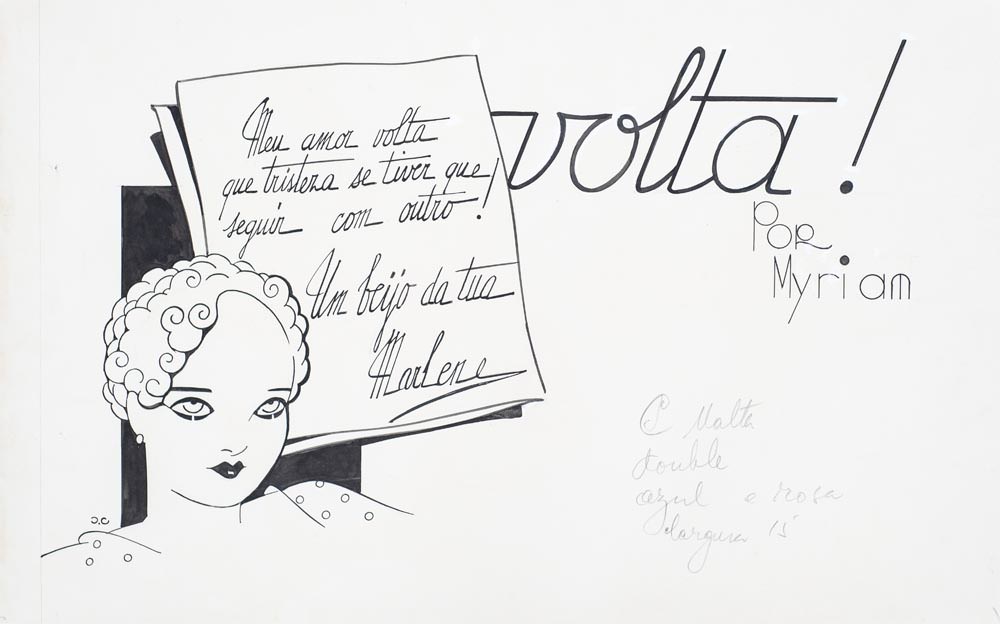 volta!
Por
Myriam
Meu amor volta
que tristeza se tiver que
seguir com outro!
Um beijo da tua
Marlene
J.C
C Malta
double
azul e rosa
largura 15